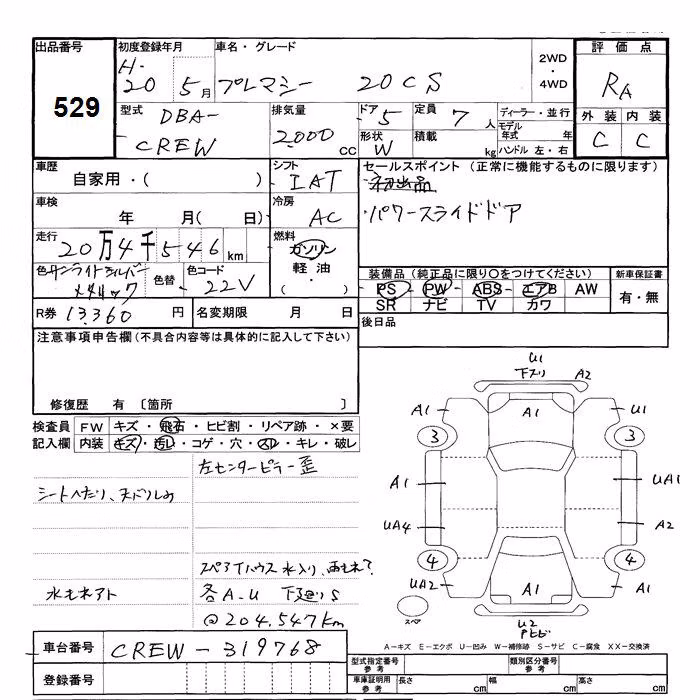 出品番号
529
初度登録年月
H-20 5月
車名・グレード
プレマシー 20CS
2WD
・
4WD
評価点
RA
外装 内装
C C
型式
DBA-
CREW
排気量
2000 cc
ドア 5
形状 W
定員 7人
積載 kg
ディーラー・並行
モデル年式 年
ハンドル 左・右
車歴
自家用・( )
シフト
IAT
車検
年 月( 日)
冷房
AC
走行
20万4千546km
燃料
ガソリン
軽油
・( )
色 サンライトシルバーメタリック
色替
色コード
22V
R券 13360 円
名変期限 月 日
セールスポイント (正常に機能するものに限ります)
・パワースライドドア
装備品 (純正品に限り○をつけてください)
PS PW ABS エアB AW
SR ナビ TV カワ
新車保証書
有・無
後日品
注意事項申告欄 (不具合内容等は具体的に記入して下さい)
修復歴 有 〔箇所 〕
検査員記入欄
FW キズ・飛石・ヒビ割・リペア跡・×要
内装 キズ・汚レ・コゲ・穴・スレ・キレ・破レ
左センターピラー歪
シートヘたり、天ドルよめ
スペアTハウス水入り、雨もれ?
水もれアト
各A-U 下廻りS
@204,547km
車台番号 CREW-319768
登録番号
U1
下ズリ
A2
A1
A1
U1
3
3
A1
UA1
UA4
A2
4
4
UA2
A1
A1
スペア
U2
Pヒビ
A-キズ E-エクボ U-凹み W-補修跡 S-サビ C-腐食 XX-交換済
型式指定番号 参考
類別区分番号 参考
車庫証明用 参考
長さ cm
幅 cm
高さ cm